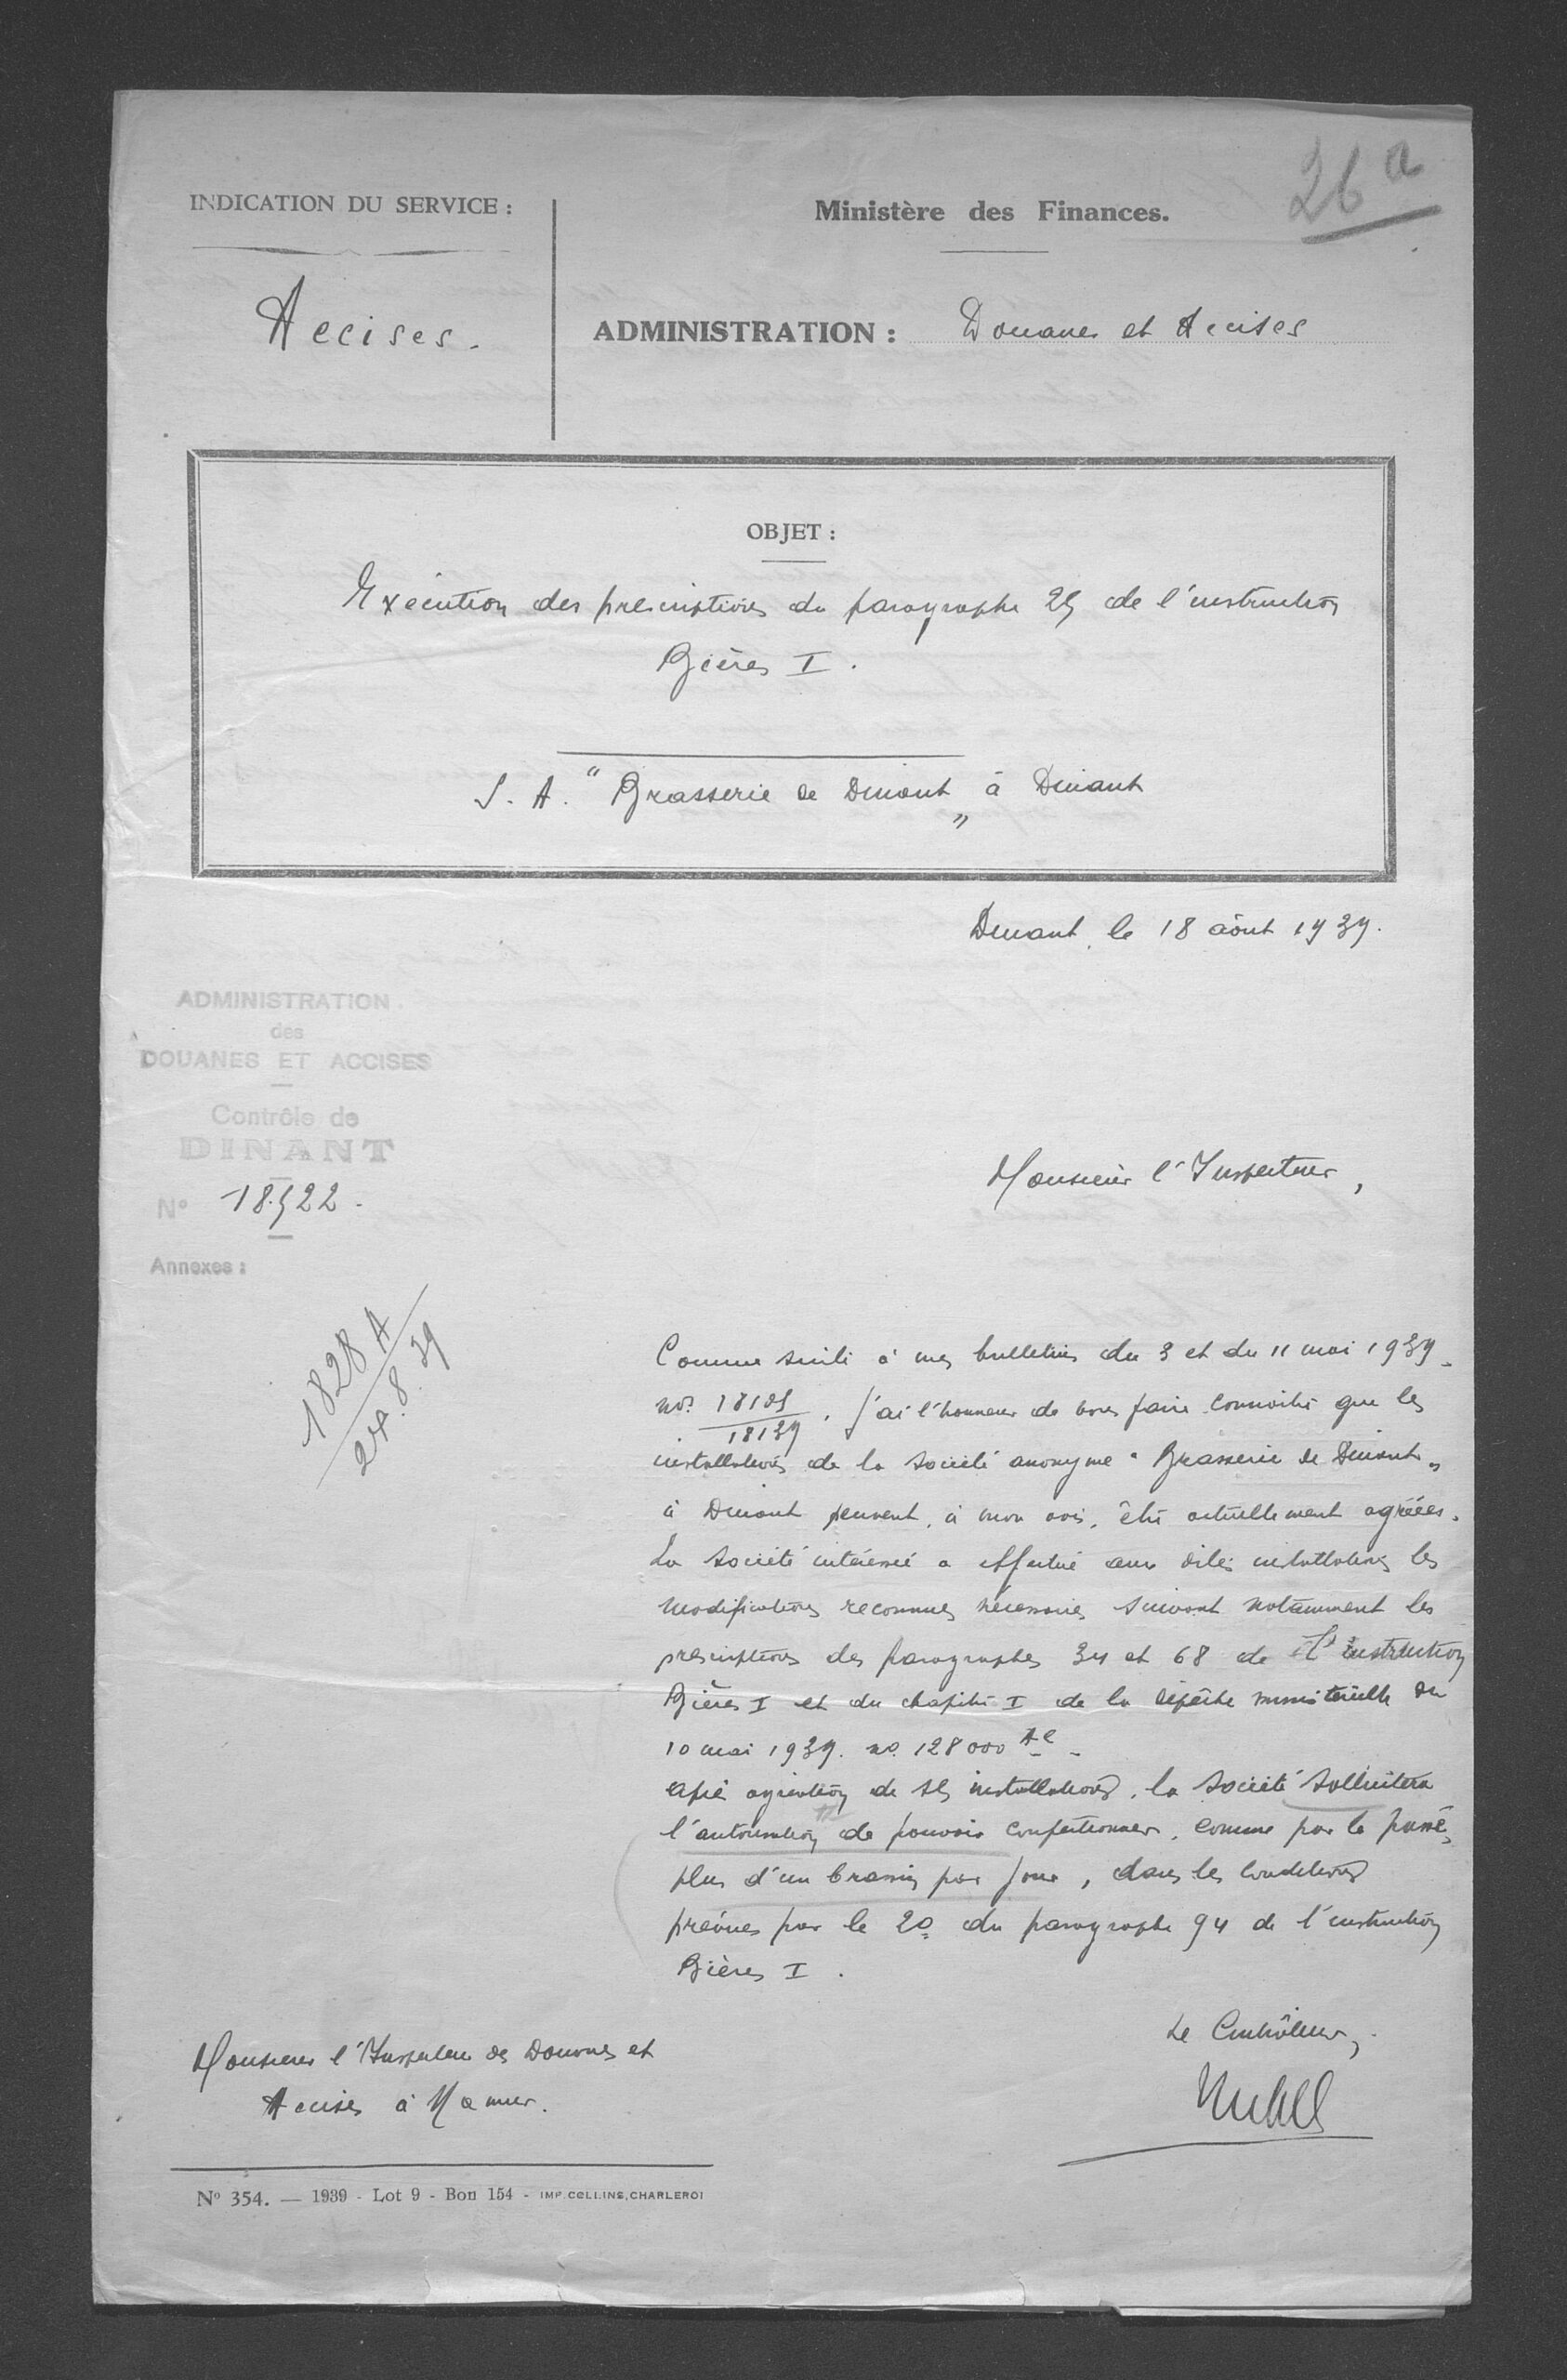 26 a
INDICATION DU SERVICE :
Accises.
Ministère des Finances.
ADMINISTRATION : Douanes et Accises
OBJET :
Exécution des prescriptions du paragraphe 25 de l'instruction
Bières I.
S. A. " Brasserie de Dinant „ à Dinant
Dinant, le 18 août 1939.
ADMINISTRATION
des
DOUANES ET ACCISES
Contrôle de
DINANT
N° 18.522.
Annexes :
1828 A
24.8.39
Monsieur l'Inspecteur,
Comme suite à mes bulletins du 3 et du 11 mai 1939.
nos. 18105
18139, j'ai l'honneur de vous faire connaître que les
installations de la société anonyme " Brasserie de Dinant „
à Dinant peuvent, à mon avis, être actuellement agréées.
La société intéressée a effectué aux dites installations les
modifications reconnues nécessaires suivant notamment les
prescriptions des paragraphes 34 et 68 de l'instruction
Bières I et du chapitre I de la dépêche ministérielle du
10 mai 1939. no. 128000 Ac.
Après agréation de ses installations, la société sollicitera
l'autorisation de pouvoir confectionner, comme par le passé,
plus d'un brassin par jour, dans les conditions
prévues par le 2o du paragraphe 94 de l'instruction
Bières I.
Le Contrôleur,
Monsieur l'Inspecteur des Douanes et
Accises à Namur.
N° 354. — 1939 - Lot 9 - Bon 154 - IMP. COLLINS, CHARLEROI